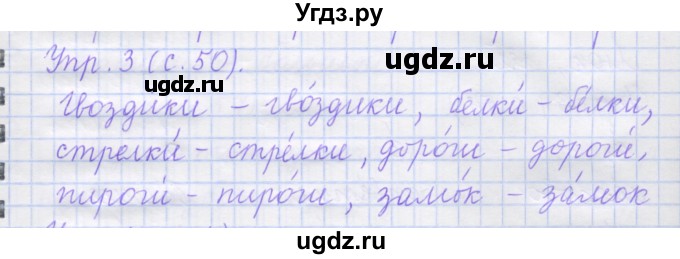 Угдз.ру
Упр. 3 (с. 50).
ugdz.ru
ugdz.ru
Гвоздики – гво́здики, белки́ – бе́лки,
стрелки́ – стре́лки, доро́ги – дороги́,
ugdz.ru
пироги́ – пиро́ги, замо́к – за́мок
ugdz.ru